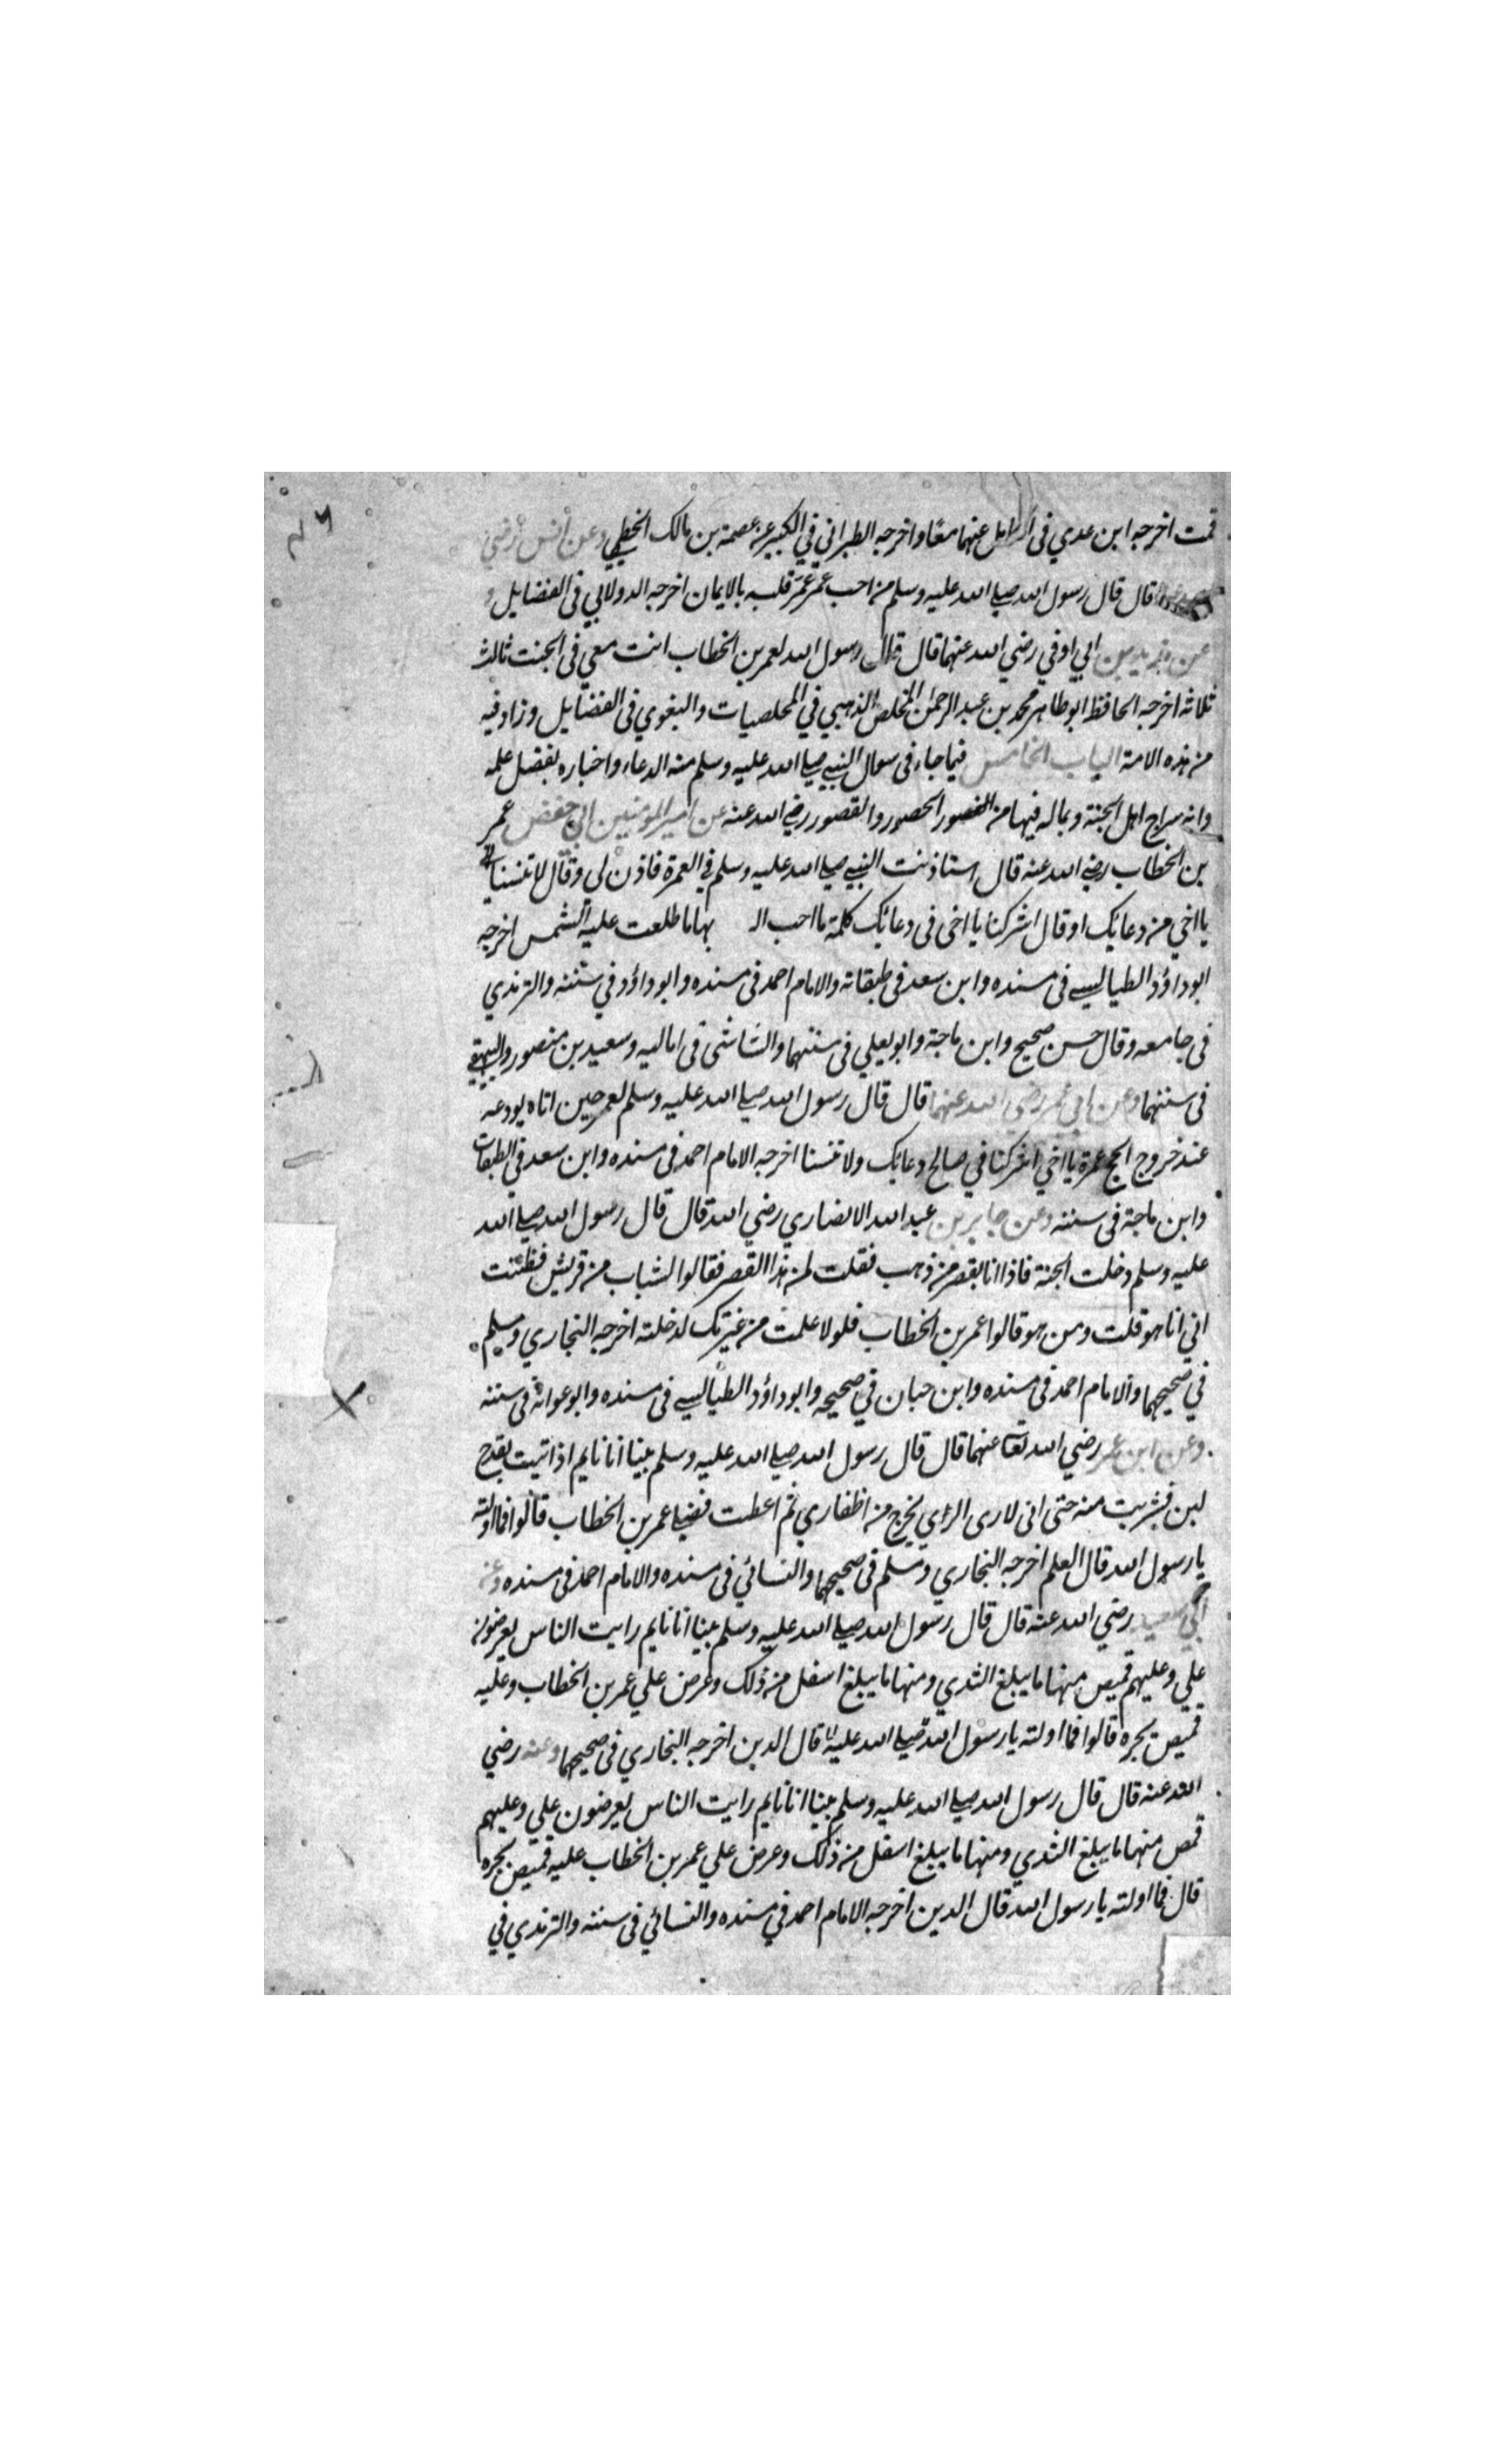 قمت اخرجه ابن عدي فى الكامل عنهما معًا واخرجه الطبراني في الكبير عن عصمة بن مالك الخطمي وعن انس رضي
قال قال رسول الله صلي الله عليه وسلم من احب عمر عَمَر قلبه بالايمان اخرجه الدولابي فى الفضايل و
عن زيد بن ابي اوفي رضي الله عنهما قال قال رسول الله لعمر بن الخطاب انت معي في الجنت ثالث
ثلاثه اخرجه الحافظ ابو طاهر محمد بن عبد الرحمان المخلص الذهبي في المخلصيات والبغوي فى الفضايل وزاد فيه
من هذه الامة الباب الخامس فيما جاء فى سوال النبي صلي الله عليه وسلم منه الدعاء واخباره بفضل علمه
وانه سراج اهل الجنة وبماله فيها من القصور الحصور والقصور رضي الله عنه عن امير المومنين ابي حفص عمر
بن الخطاب رضي الله عنه قال استاذنت النبي صلي الله عليه وسلم في العمرة فاذن لي وقال لا تنسنا
يا اخي من دعائك او قال اشركنا يا اخى فى دعائك كلمة ما احب الـ بها ما طلعت عليه الشمس اخرجه
ابو داؤد الطيالسي فى مسنده وابن سعد فى طبقاته والامام احمد فى مسنده وابو داؤد في سننه والترمذي
فى جامعه وقال حسن صحيح وابن ماجة وابو يعلي فى سننهما والشاشى فى اماليه وسعيد بن منصور والبيهقي
فى سننهما وعن ابي عمر رضي الله عنهما قال قال رسول الله صلي الله عليه وسلم لعمر حين اتاه يودعه
عند خروج الحج عمرة يا اخي اشركنا في صالح دعائك ولا تنسنا اخرجه الامام احمد فى مسنده وابن سعد في الطبقات
وابن ماجة فى سننه وعن جابر بن عبد الله الانصاري رضي الله قال قال رسول الله صلي الله
عليه وسلم دخلت الجنة فاذا انا بقصر من ذهب فقلت لمن هذا القصر فقالوا لشباب من قريش فظننت
اني انا هو قلت ومن هو قالوا عمر بن الخطاب فلولا علمت من غيرتك لدخلته اخرجه البخاري ومسلم
في صحيحهما والامام احمد فى مسنده وابن حبان في صحيحه وابو داؤد الطيالسي فى مسنده وابو عوانة فى سننه
وعن ابن عمر رضي الله تعا عنهما قال قال رسول الله صلي الله عليه وسلم بينا انا نايم اذ اتيت بقدح
لبن فشربت منه حتى انى لارى الراي يخرج من اظفاري ثم اعطت فضلي عمر بن الخطاب قالوا فما اولته
يا رسول الله قال العلم اخرجه البخاري ومسلم فى صحيحهما والنسائي فى سنده والامام احمد فى مسنده وعن
ابي سعيد رضي الله عنه قال قال رسول الله صلي الله عليه وسلم بينا انا نايم رايت الناس يعرضون
علي وعليهم قميص منها ما يبلغ الثدي ومنها ما يبلغ اسفل من ذلك وعرض علي عمر بن الخطاب وعليه
قميص يجره قالوا فما اولته يا رسول الله صلي الله عليه قال الدين اخرجه البخاري فى صحيحهما وعنه رضي
الله عنه قال قال رسول الله صلي الله عليه وسلم بينا انا نايم رايت الناس يعرضون علي وعليهم
قمص منها ما يبلغ الثدي ومنها ما يبلغ اسفل من ذلك وعرض علي عمر بن الخطاب عليه قميص يجره
قال فما اولته يا رسول الله قال الدين اخرجه الامام احمد في مسنده والنسائي فى سننه والترمذي في